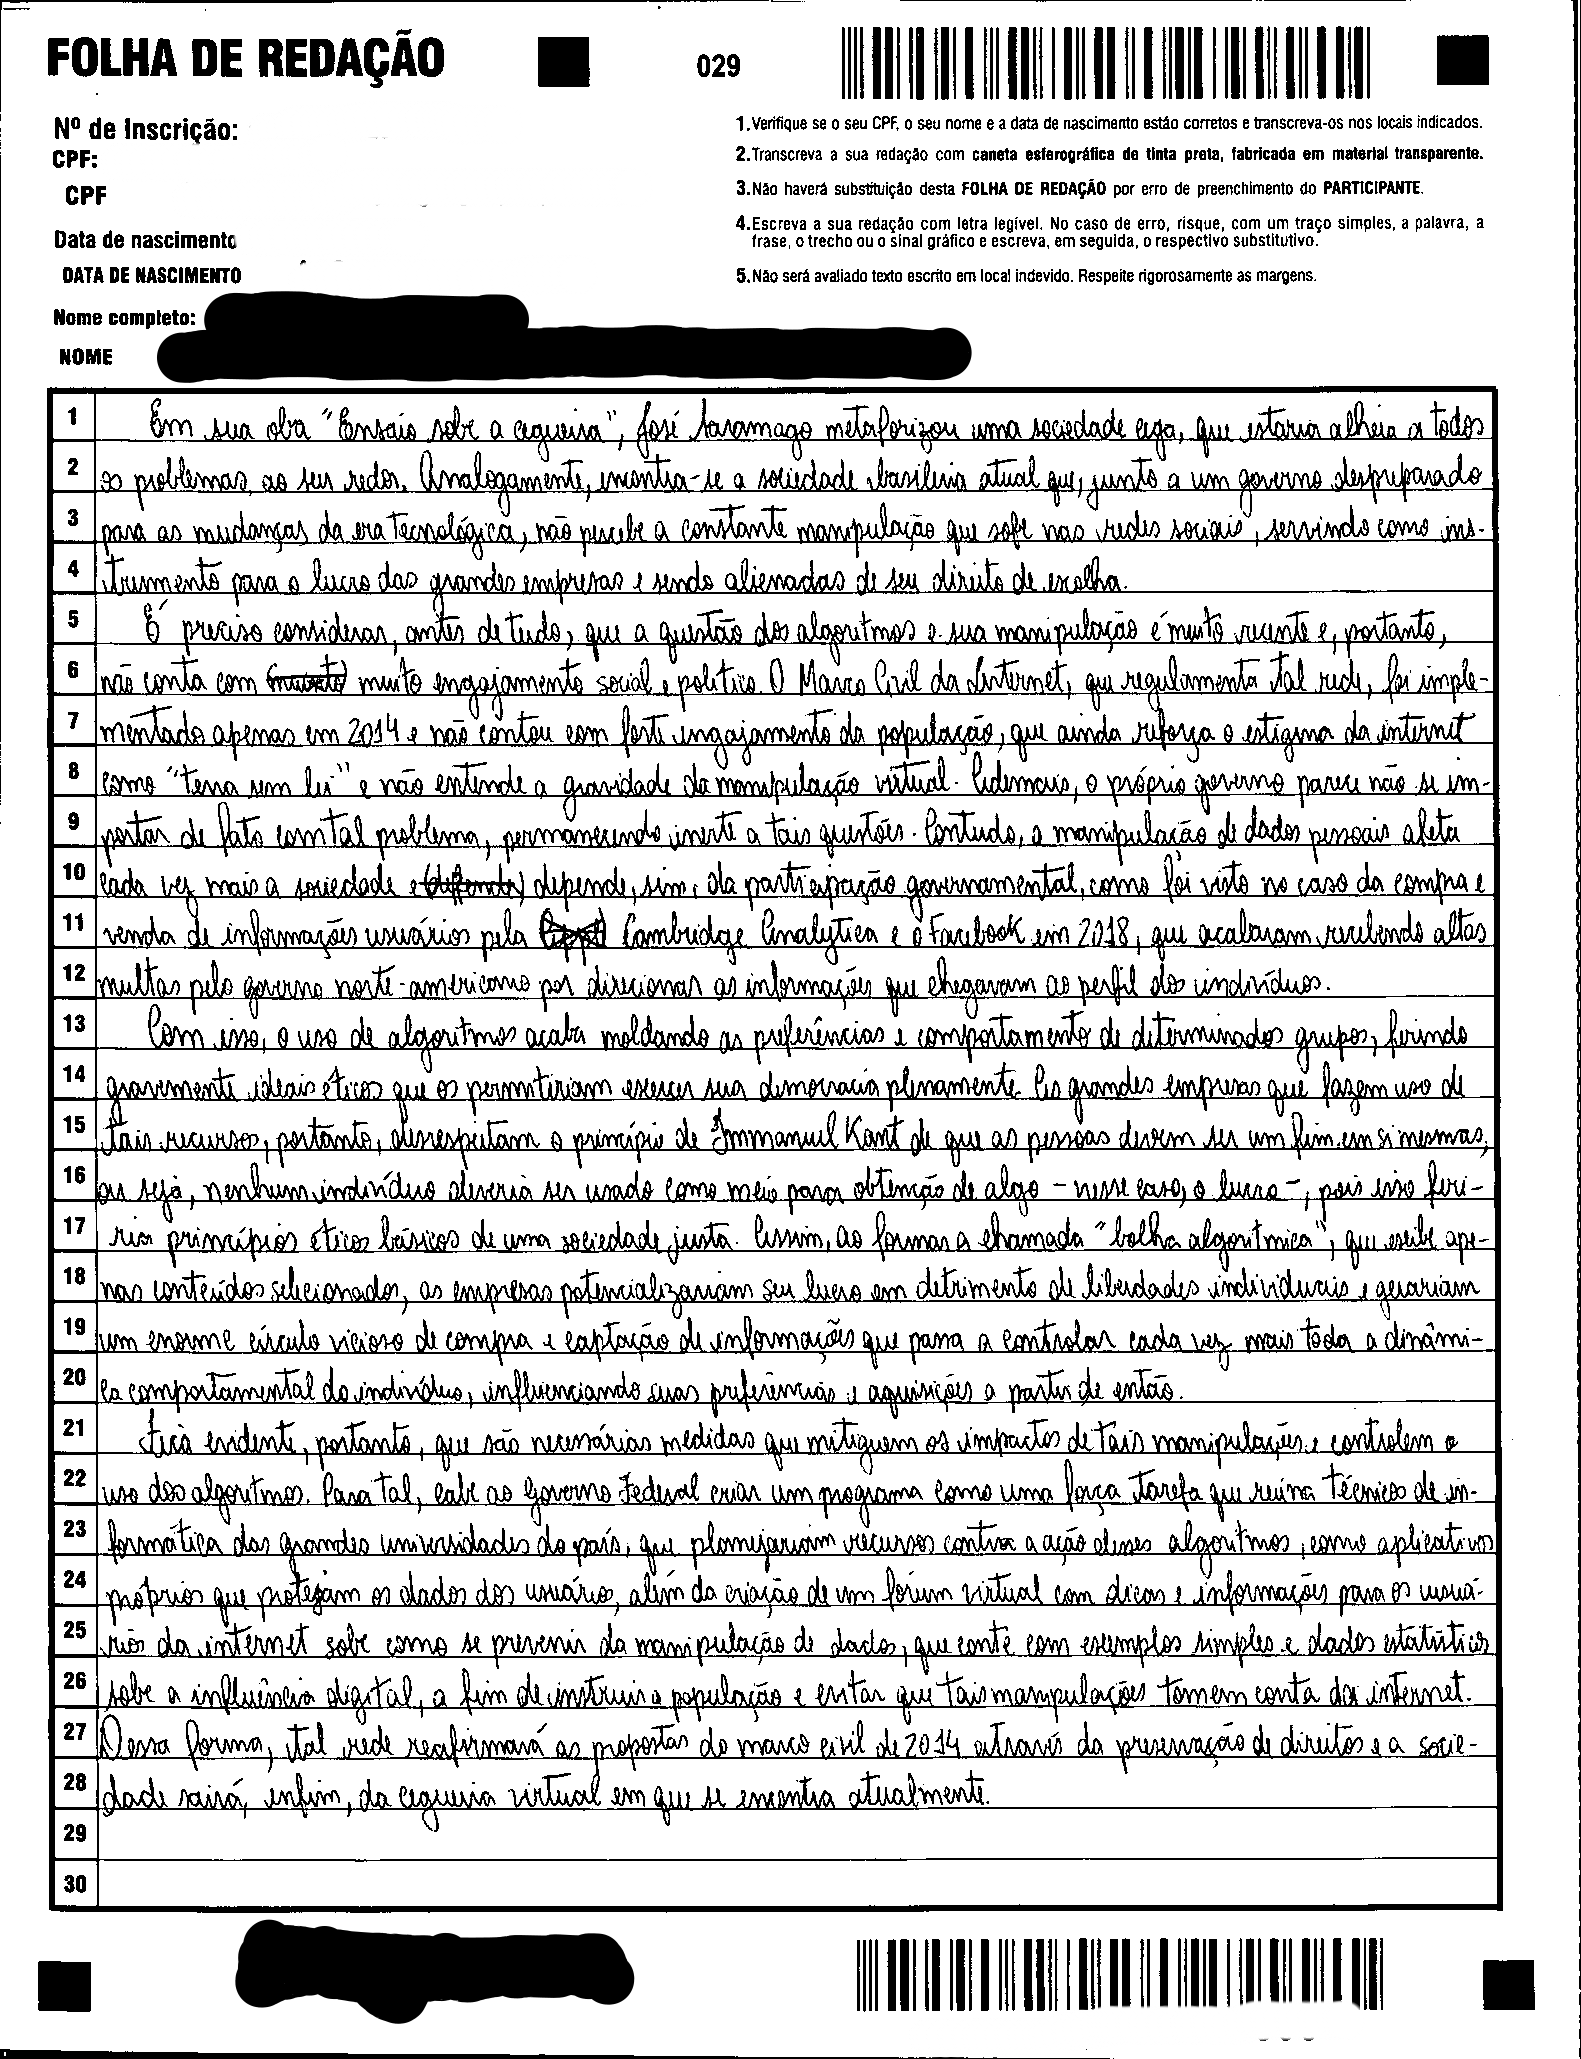 FOLHA DE REDAÇÃO
029
Nº de Inscrição:
CPF:
CPF
Data de nascimento
DATA DE NASCIMENTO
Nome completo:
NOME
1.Verifique se o seu CPF, o seu nome e a data de nascimento estão corretos e transcreva-os nos locais indicados.
2.Transcreva a sua redação com caneta esferográfica de tinta preta, fabricada em material transparente.
3.Não haverá substituição desta FOLHA DE REDAÇÃO por erro de preenchimento do PARTICIPANTE.
4.Escreva a sua redação com letra legível. No caso de erro, risque, com um traço simples, a palavra, a
frase, o trecho ou o sinal gráfico e escreva, em seguida, o respectivo substitutivo.
5.Não será avaliado texto escrito em local indevido. Respeite rigorosamente as margens.
1 Em sua obra "Ensaio sobre a cegueira", José Saramago metaforizou uma sociedade cega, que estaria alheia a todos
2 os problemas ao seu redor. Analogamente, encontra-se a sociedade brasileira atual que, junto a um governo despreparado
3 para as mudanças da era tecnológica, não percebe a constante manipulação que sofre nas redes sociais, servindo como ins-
4 trumento para o lucro das grandes empresas e sendo alienadas de seu direito de escolha.
5 É preciso considerar, antes de tudo, que a questão dos algoritmos e sua manipulação é muito recente e, portanto,
6 não conta com muito engajamento social e político. O Marco Civil da Internet, que regulamenta tal rede, foi imple-
7 mentado apenas em 2014 e não contou com forte engajamento da população, que ainda reforça o estigma da internet
8 como "terra sem lei" e não entende a gravidade da manipulação virtual. Ademais, o próprio governo parece não se im-
9 portar de fato com tal problema, permanecendo inerte a tais questões. Contudo, a manipulação de dados pessoais afeta
10 cada vez mais a sociedade e depende, sim, da participação governamental, como foi visto no caso da compra e
11 venda de informações usuários pela Cambridge Analytica e o Facebook em 2018, que acabaram recebendo altas
12 multas pelo governo norte-americano por direcionar as informações que chegavam ao perfil dos indivíduos.
13 Com isso, o uso de algoritmos acaba moldando as preferências e comportamento de determinados grupos, ferindo
14 gravemente ideais éticos que os permitiriam exercer sua democracia plenamente. As grandes empresas que fazem uso de
15 tais recursos, portanto, desrespeitam o princípio de Immanuel Kant de que as pessoas devem ser um fim em si mesmas,
16 ou seja, nenhum indivíduo deveria ser usado como meio para obtenção de algo - nesse caso, o lucro -, pois isso feri-
17 ria princípios éticos básicos de uma sociedade justa. Assim, ao formar a chamada "bolha algorítmica", que exibe ape-
18 nas conteúdos selecionados, as empresas potencializariam seu lucro em detrimento de liberdades individuais e gerariam
19 um enorme círculo vicioso de compra e captação de informações que passa a controlar cada vez mais toda a dinâmi-
20 ca comportamental do indivíduo, influenciando suas preferências e aquisições a partir de então.
21 Fica evidente, portanto, que são necessárias medidas que mitiguem os impactos de tais manipulações e controlem o
22 uso dos algoritmos. Para tal, cabe ao Governo Federal criar um programa como uma força tarefa que reúna técnicos de in-
23 formática das grandes universidades do país, que planejariam recursos contra a ação desses algoritmos, como aplicativos
24 próprios que protejam os dados dos usuário, além da criação de um fórum virtual com dicas e informações para os usuá-
25 rios da internet sobre como se prevenir da manipulação de dados, que conte com exemplos simples e dados estatísticos
26 sobre a influência digital, a fim de instruir a população e evitar que tais manipulações tomem conta da internet.
27 Dessa forma, tal rede reafirmará as propostas do marco civil de 2014 através da preservação de direitos e a socie-
28 dade sairá, enfim, da cegueira virtual em que se encontra atualmente.
29
30